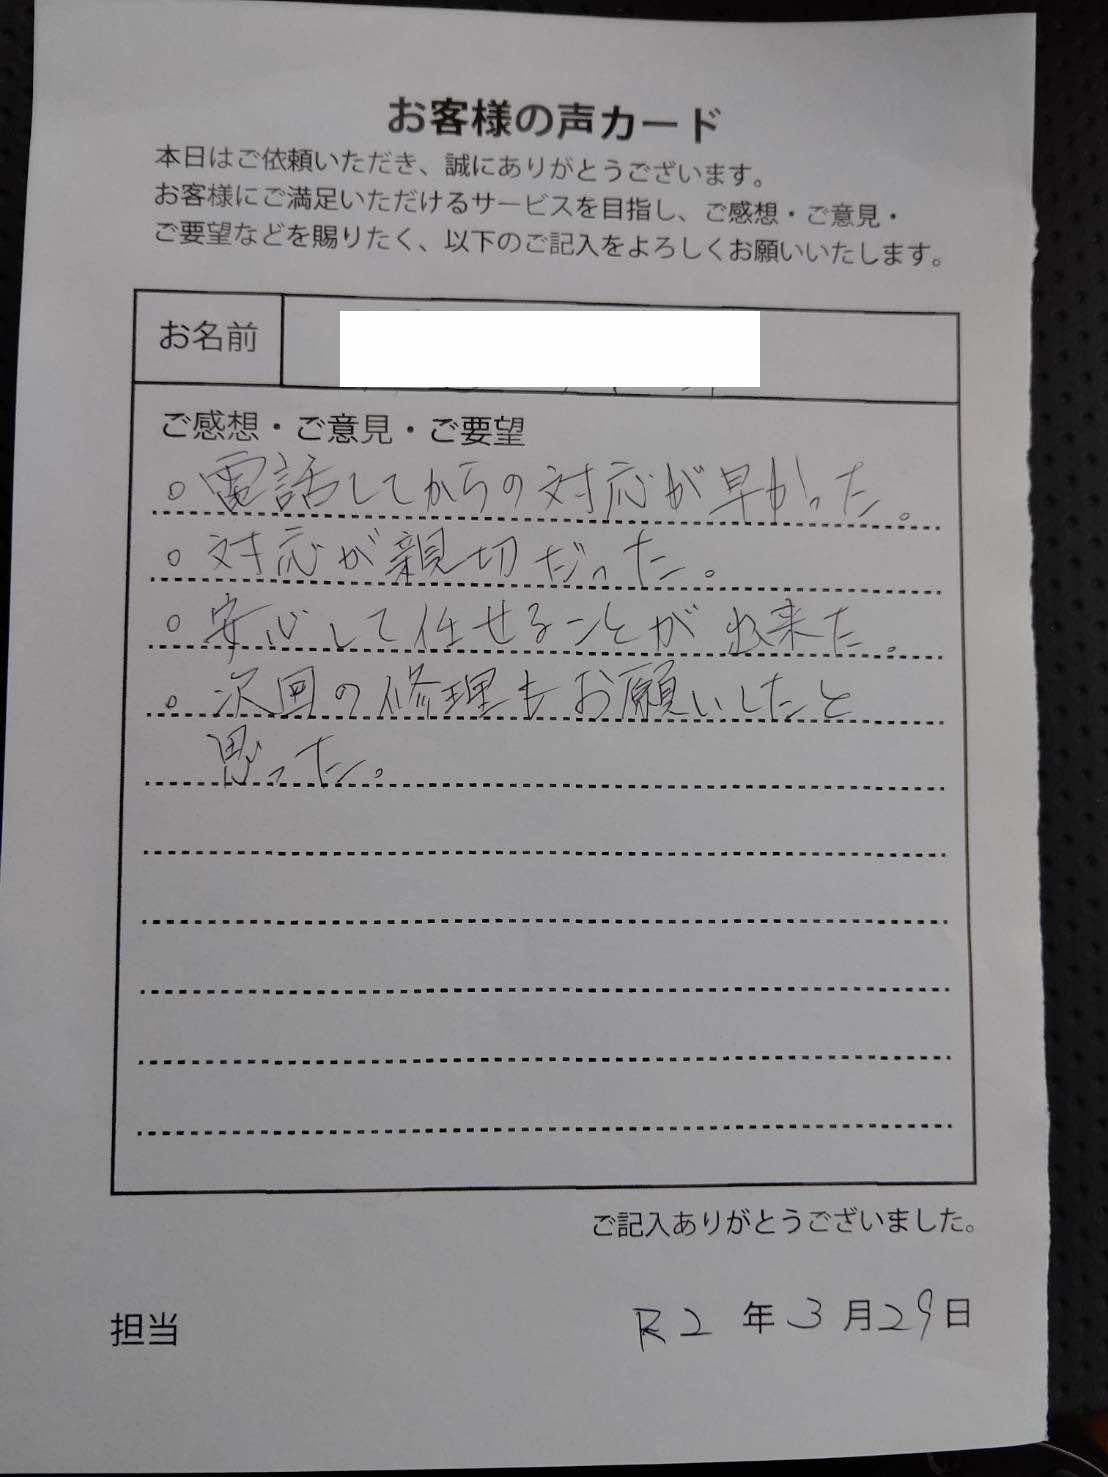 お客様の声カード
本日はご依頼いただき、誠にありがとうございます。
お客様にご満足いただけるサービスを目指し、ご感想・ご意見・
ご要望などを賜りたく、以下のご記入をよろしくお願いいたします。
お名前
ご感想・ご意見・ご要望
。電話してからの対応が早かった。
。対応が親切だった。
。安心して任せることが出来た。
。次回の修理もお願いしたと
思った。
ご記入ありがとうございました。
担当
R2年3月29日